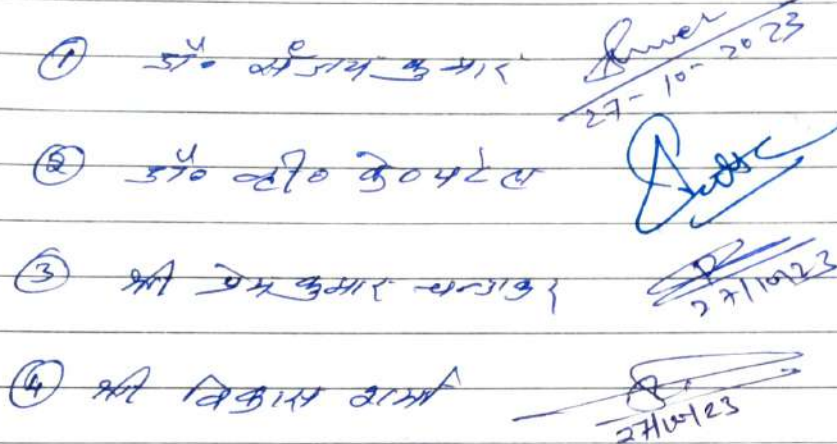 ① डॉ० संजय कुमार 27-10-2023
② डॉ० व्ही० के० पटेल
③ श्री प्रेम कुमार चन्द्राकर 27/10/23
④ श्री विकास शर्मा 27/10/23